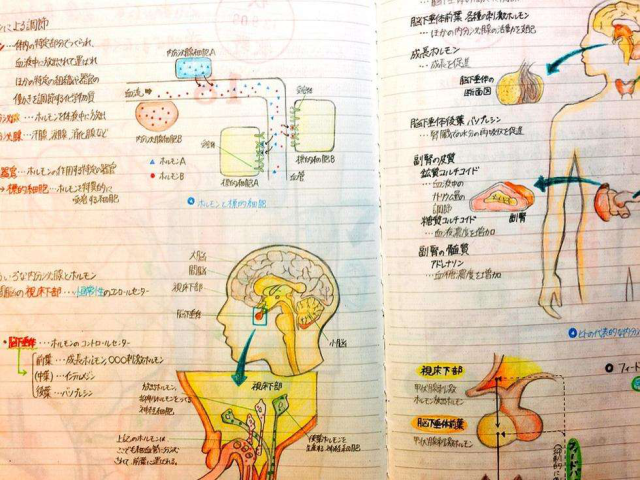 による調節
…体内の特定部分でつくられ、
血液中に放出されて運ばれ、
ほかの特定の組織や器官の
働きを調節する化学物質
…ホルモンを体液中に放出
…汗腺、涙腺、消化腺など
器官…ホルモンの作用する特定の器官
→標的細胞…ホルモンを特異的に
受容する細胞
内分泌腺細胞A
血流
内分泌腺細胞B
▲ホルモンA
●ホルモンB
標的細胞A
標的細胞B
血管
ホルモンと標的細胞
いろいろな内分泌腺とホルモン
視床下部…恒常性のコントロールセンター
脳下垂体…ホルモンのコントロールセンター
前葉…成長ホルモン、○○○刺激ホルモン
(中葉)…インテルメジン
後葉…バソプレシン
大脳
間脳
視床下部
脳下垂体
小脳
視床下部
放出ホルモン、
神経細胞
上記のホルモンは、
後葉ホルモンを
脳下垂体前葉 各種の刺激ホルモン
…ほかの内分泌腺の活動を支配
成長ホルモン
…成長を促進
脳下垂体の
断面図
脳下垂体後葉 バソプレシン
…腎臓での水分の再吸収を促進
副腎の皮質
鉱質コルチコイド
…血液中の
ナトリウム量の
調節
糖質コルチコイド
…血糖濃度を増加
副腎
副腎の髄質
アドレナリン
…血糖濃度を増加
ヒトの代表的な内分
視床下部
甲状腺刺激
ホルモン放出ホルモン
脳下垂体前葉
甲状腺刺激ホルモン
フィード
フィードバ